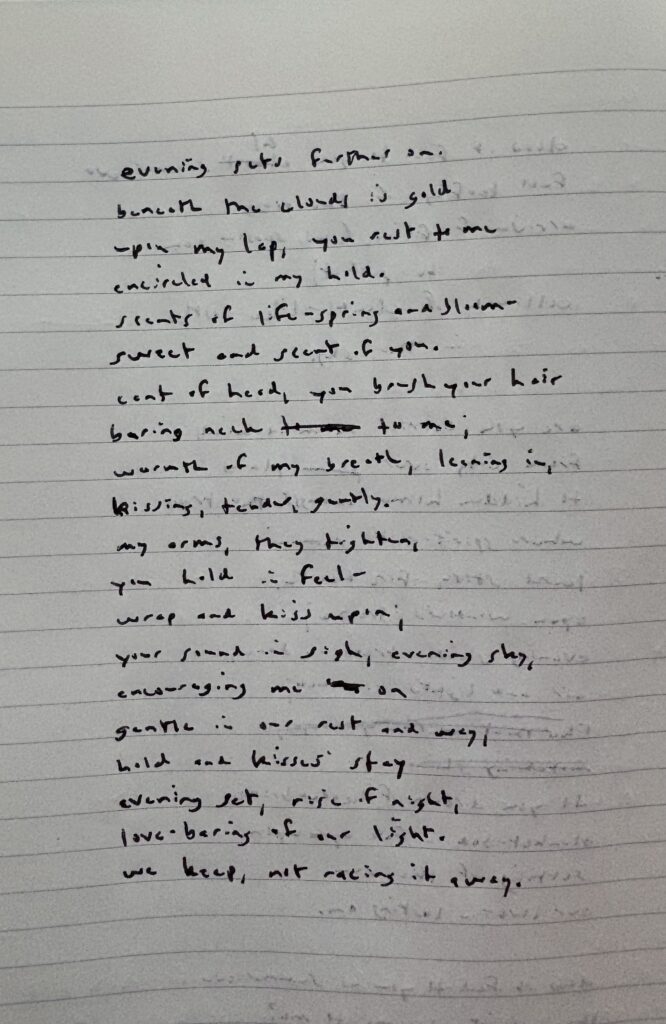 evening sets further on.
beneath the clouds is gold
upon my lap, you rest to me
encircled in my hold.
scents of life-spring and bloom-
sweet and scent of you.
cant of head, you brush your hair
baring neck to me;
warmth of my breath, leaning in,
kissing, tender, gently.
my arms, they tighten,
you hold in feel-
wrap and kiss upon;
your sound in sigh, evening sky,
encouraging me on
gentle in our rest and way,
hold and kisses stay
evening set, rise of night,
love-baring of our light.
we keep, not racing it away.